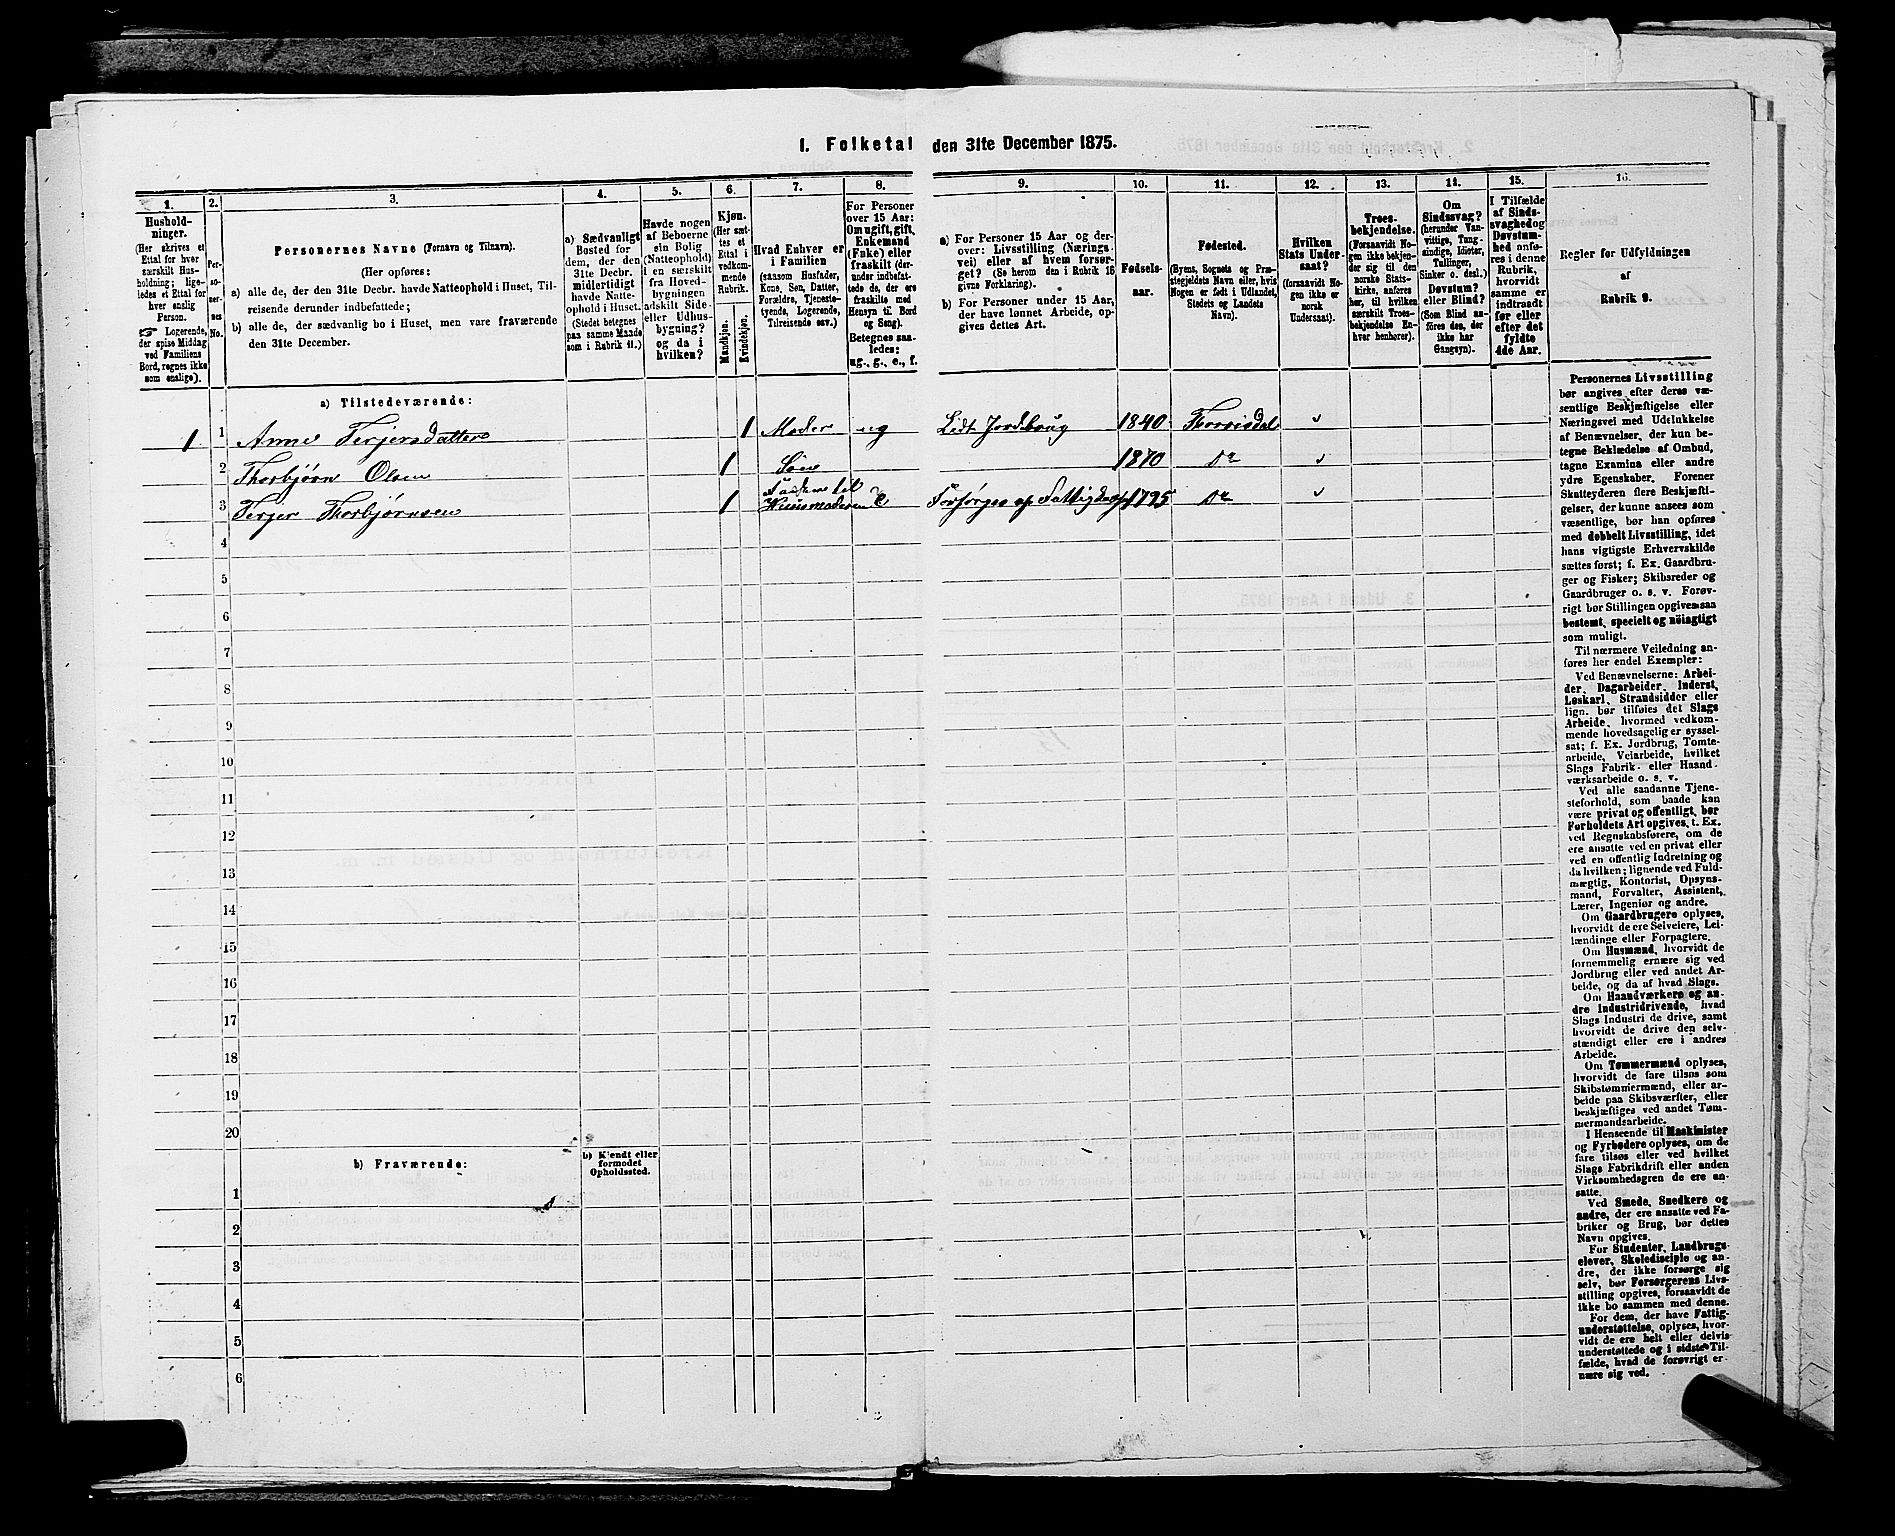 1. Folketal den 31te December 1875.
1. 2. 3. 4. 5. 6. 7. 8. 9. 10. 11. 12. 13. 14. 15. 16.
Hushold-
ninger.
(Her skrives et
Ettal for hver
særskilt Hus-
holdning; lige-
ledes et Ettal for
hver enslig
Person.
☞ Logerende,
der spise Middag
ved Familiens
Bord, regnes ikke
som enslige).
Per-
so-
ner-
nes
No.
Personernes Navne (Fornavn og Tilnavn).
(Her opføres:
a) alle de, der den 31te Decbr. havde Natteophold i Huset, Til-
reisende derunder indbefattede;
b) alle de, der sædvanlig bo i Huset, men vare fraværende
den 31te December.
a) Sædvanligt
Bosted for
dem, der den
31te Decbr.
midlertidigt
havde Natte-
ophold i Huset.
(Stedet betegnes
paa samme Maade
som i Rubrik 11.)
Havde nogen
af Beboerne
sin Bolig
(Natteophold)
i en særskilt
fra Hoved-
bygningen
adskilt Side-
eller Udhus-
bygning?
og da i
hvilken?
Kjøn.
(Her sæt-
tes et
Ettal i
vedkom-
mende
Rubrik.
Mandkjøn.
Kvindekjøn.
Hvad Enhver er
i Familien
(saasom Husfader,
Kone, Søn, Datter,
Forældre, Tjeneste-
tyende, Logerende,
Tilreisende osv.)
For Personer
over 15 Aar:
Om ugift, gift,
Enkemand
(Enke) eller
fraskilt (der-
under indbefat-
tede de, der ere
fraskilte med
Hensyn til Bord
og Seng).
Betegnes saa-
ledes:
ug., g., e., f.
a) For Personer 15 Aar og der-
over: Livsstilling (Nærings-
vei) eller af hvem forsør-
get? (Se herom den i Rubrik 16
givne Forklaring).
b) For Personer under 15 Aar,
der have lønnet Arbeide, op-
gives dettes Art.
Fødsels-
aar.
Fødested.
(Byens, Sognets og Præ-
stegjeldets Navn eller, hvis
Nogen er født i Udlandet,
Stedets og Landets
Navn).
Hvilken
Stats Under-
saat?
(forsaavidt No-
gen ikke er
norsk
Undersaat).
Troes-
bekjendelse.
(Forsaavidt No-
gen ikke bekjen-
der sig til den
norske Stats-
kirke, anføres
her, til hvilken
særskilt Troes-
bekjendelse En-
hver henhører).
Om
Sindssvag?
(herunder Van-
vittige, Tung-
sindige, Idioter,
Tullinger,
Sinker o. desl.)
Døvstum?
eller Blind?
(Som Blind an-
føres des, der
ikke har
Gangsyn).
I Tilfælde
af Sinds-
svaghed og
Døvstum-
hed anfø-
res i denne
Rubrik,
hvorvidt
samme er
indtraadt
før eller
efter det
fyldte
4de Aar.
Regler for Udfyldningen
af
Rubrik 9.
a) Tilstedeværende:
1 1 Anne Terjersdatter 1 Moder ug Lidt Jordbrug 1840 Thorrisdal
2 Thorbjørn Olsen 1 Søn 1870 Do
3 Terjer Thorbjørnsen 1 Fader til Husmoderen E Forsørges af Fattigkas 1795 Do
4
5
6
7
8
9
10
11
12
13
14
15
16
17
18
19
20
b) Fraværende:
b) Kjendt eller
formodet
Opholdssted.
1
2
3
4
5
6
Personernes Livsstilling
bør angives efter deres væ-
sentlige Beskjæftigelse eller
Næringsvei med Udelukkelse
af Benævnelser, der kun be-
tegne Beklædelse af Ombud,
tagne Examina eller andre
ydre Egenskaber. Forener
Skatteyderen flere Beskjæfti-
gelser, der kunne ansees som
væsentlige, bør han opføres
med dobbelt Livsstilling, idet
hans vigtigste Erhvervskilde
sættes først; f. Ex. Gaardbru-
ger og Fisker; Skibsreder og
Gaardbruger o. s. v. Forøv-
rigt bør Stillingen opgives saa
bestemt, specielt og nöiagtigt
som muligt.
Til nærmere Veiledning an-
føres her endel Exempler:
Ved Benævnelserne: Arbei-
der, Dagarbeider, Inderst,
Løskarl, Strandsidder eller
lign. bør tilføies det Slags
Arbeide, hvormed vedkom-
mende hovedsagelig er syssel-
sat; f. Ex. Jordbrug, Tomte-
arbeide, Veiarbeide, hvilket
Slags Fabrik- eller Haand-
værksarbeide o. s. v.
Ved alle saadanne Tjene-
steforhold, som baade kan
være privat og offentligt, bør
Forholdets Art opgives, t. Ex.
ved Regnskabsførere, om de
ere ansatte ved en privat eller
ved en offentlig Indretning og
da hvilken; lignende ved Fuld-
mægtig, Kontorist, Opsyns-
mand, Forvalter, Assistent,
Lærer, Ingeniør og andre.
Om Gaardbrugere oplyses,
hvorvidt de ere Selveiere, Lei-
lændinge eller Forpagtere.
Om Husmænd, hvorvidt de
fornemmelig ernære sig ved
Jordbrug eller ved andet Ar-
beide, og da af hvad Slags.
Om Haandværkere og an-
dre Industridrivende, hvad
Slags Industri de drive, samt
hvorvidt de drive den selv-
stændigt eller ere i andres
Arbeide.
Om Tømmermænd oplyses,
hvorvidt de fare tilsøs som
Skibstømmermænd, eller ar-
beide paa Skibsværfter, eller
beskjæftiges ved andet Tøm-
mermandsarbeide.
I Henseende til Maskinister
og Fyrbødere oplyses, om de
fare tilsøs eller ved hvilket
Slags Fabrikdrift eller anden
Virksomhedsgren de ere an-
satte.
Ved Smede, Snedkere og
andre, der ere ansatte ved Fa-
briker og Brug, bør dettes
Navn opgives.
For Studenter, Landbrugs-
elever, Skoledisciple og an-
dre, der ikke forsørge sig
selv, bør Forsørgerens Livs-
stilling opgives, forsaavidt de
ikke bo sammen med denne.
For dem, der have Fattig-
understøttelse, oplyses, hvor-
vidt de ere helt eller delvis
understøttede og i sidste Til-
fælde, hvad de forøvrigt er-
nære sig ved.